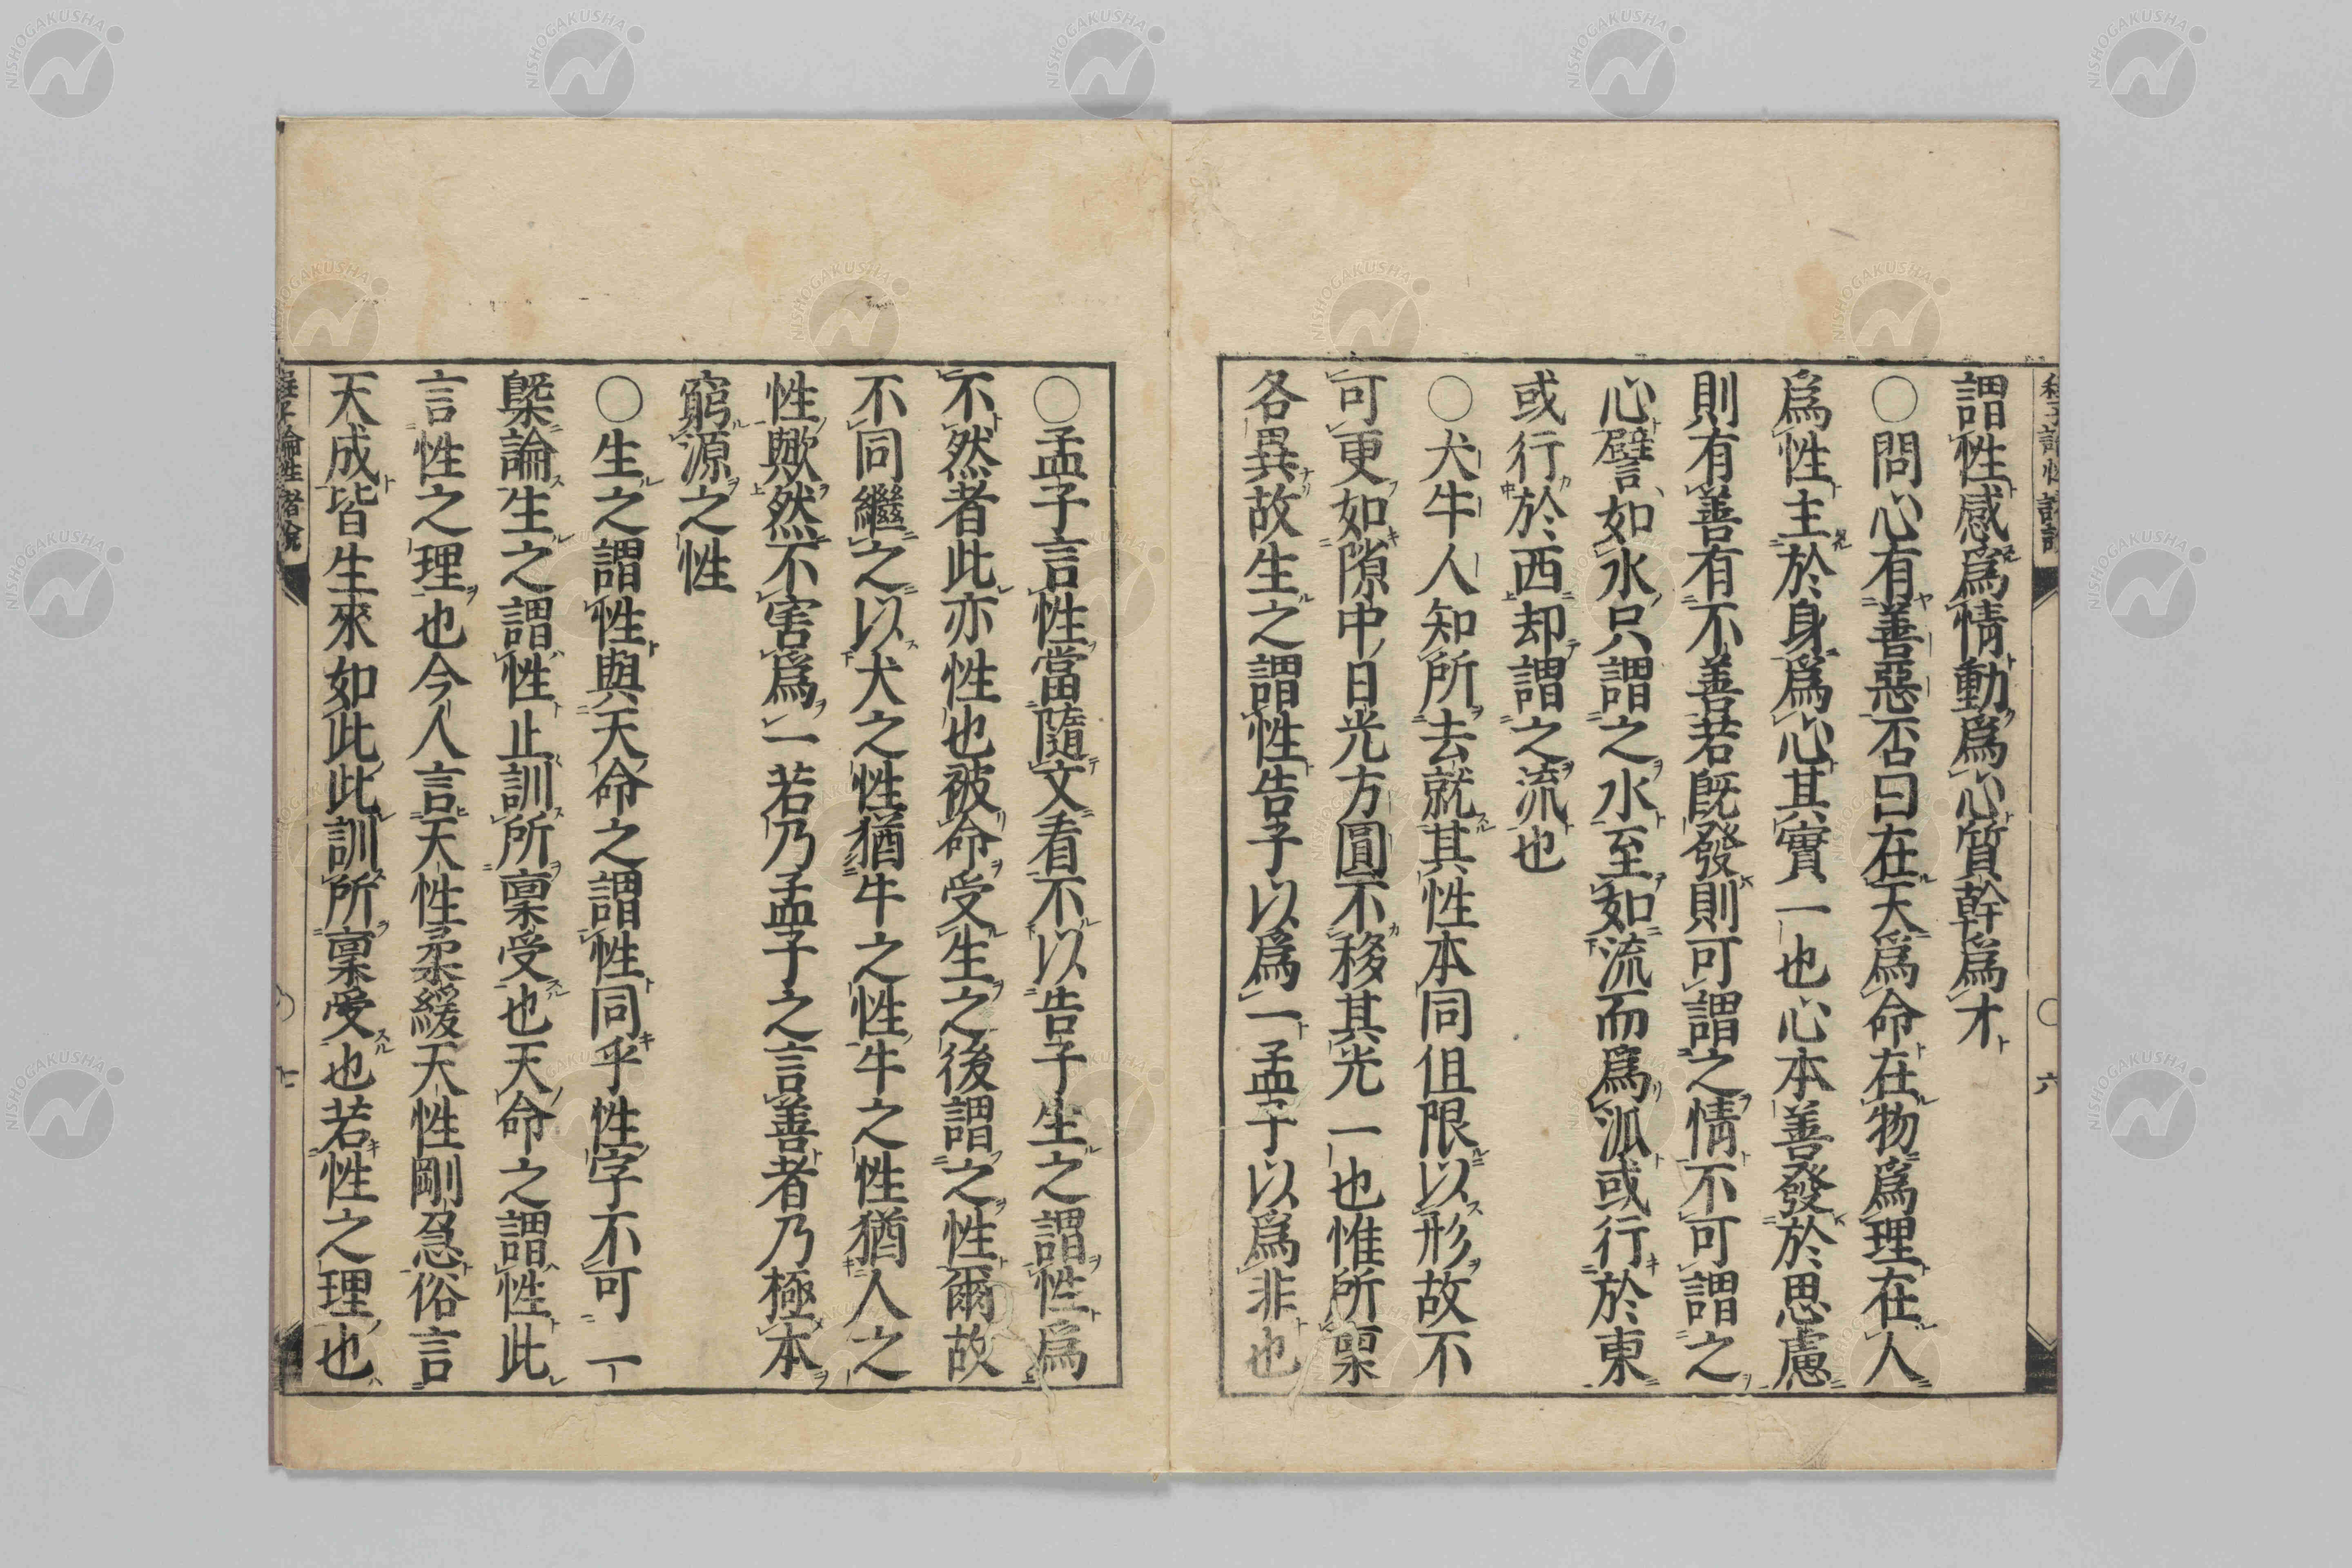 謂性感爲情動爲心質幹爲才
○問心有善惡否曰在天爲命在物爲理在人
爲性主於身爲心其實一也心本善發於思慮
則有善有不善若既發則可謂之情不可謂之
心譬如水只謂之水至如流而爲派或行於東
或行於西却謂之流也
○犬牛人知所去就其性本同但限以形故不
可更如隙中日光方圓不移其光一也惟所稟
各異故生之謂性告子以爲一孟子以爲非也
○孟子言性當隨文看不以告子生之謂性爲
不然者此亦性也被命受生之後謂之性爾故
不同繼之以犬之性猶牛之性牛之性猶人之
性歟然不害爲一若乃孟子之言善者乃極本
窮源之性
○生之謂性與天命之謂性同乎性字不可一
槩論生之謂性止訓所稟受也天命之謂性此
言性之理也今人言天性柔緩天性剛急俗言
天成皆生來如此此訓所稟受也若性之理也
程子論性諸說
六
七
NISHOGAKUSHA